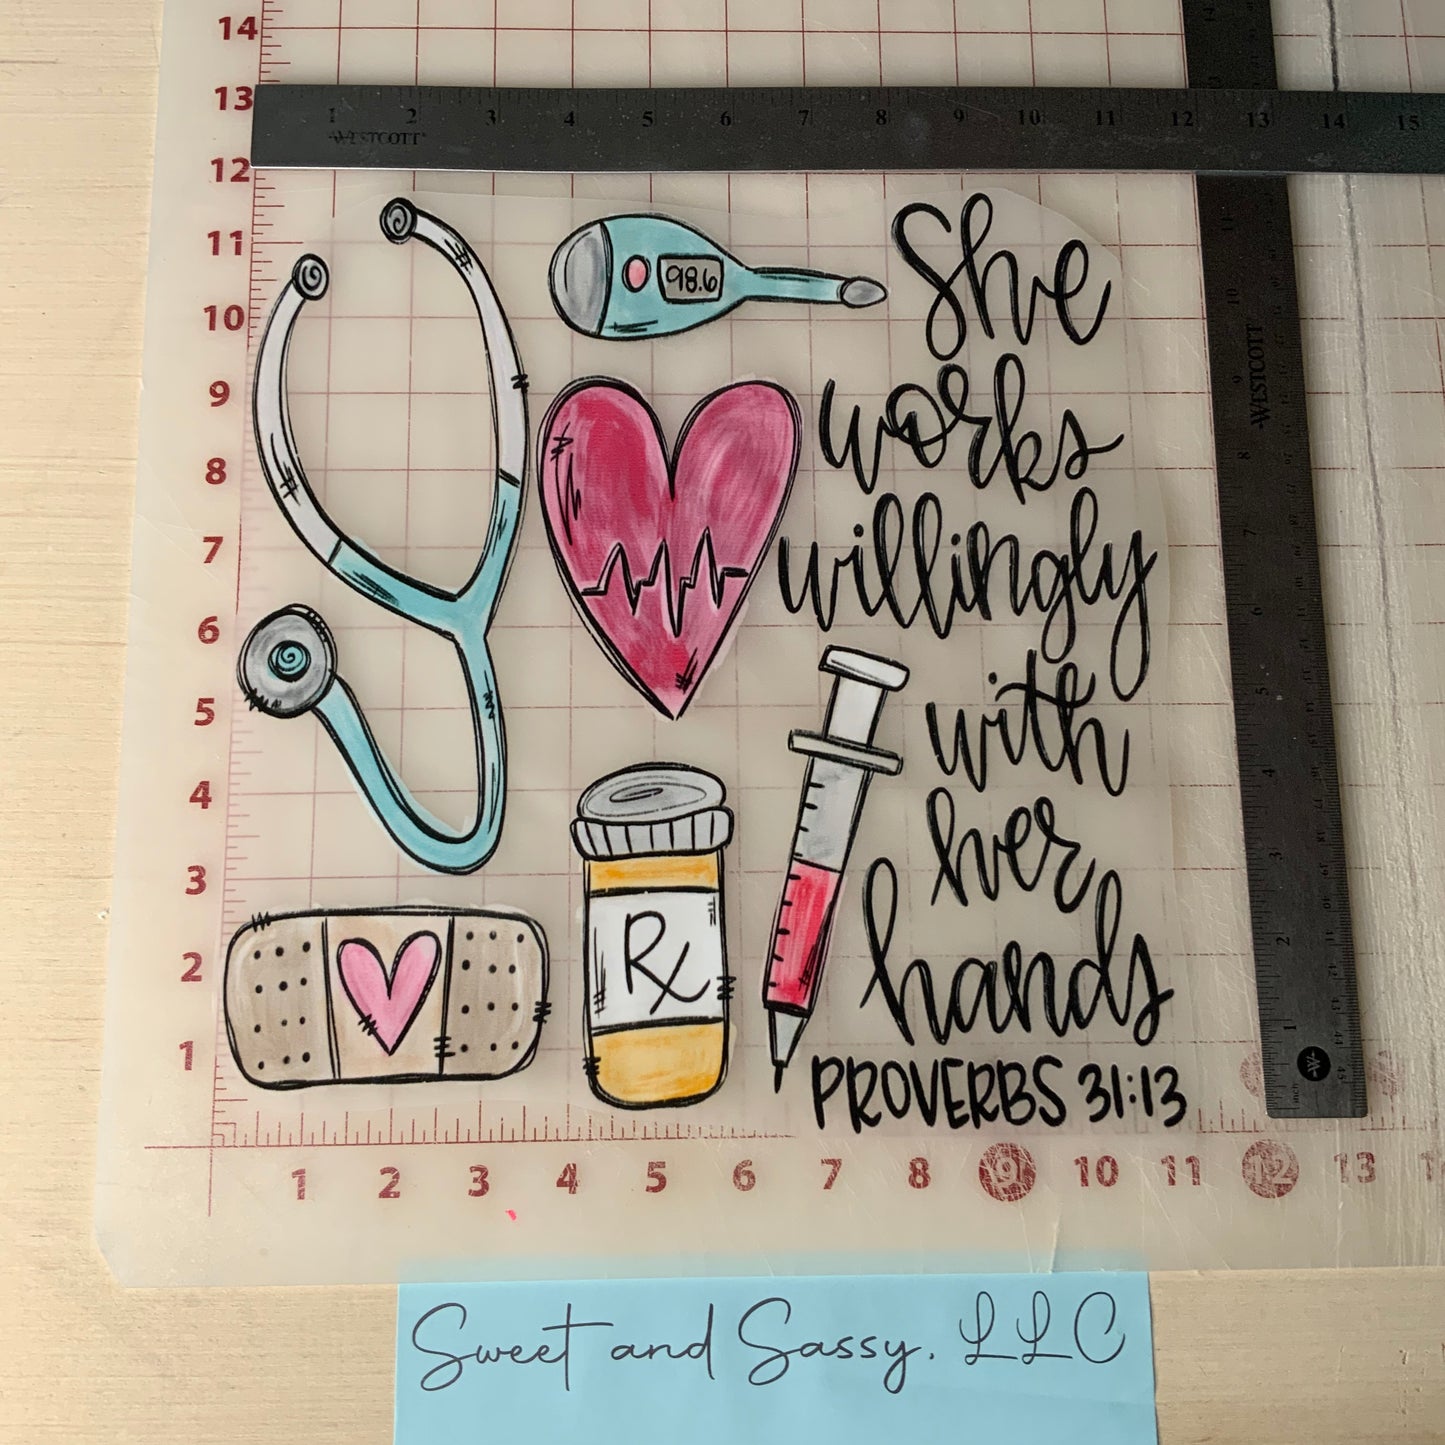 14
13
12
11
10
9
8
7
6
5
4
3
2
1
1 2 3 4 5 6 7 8 9 10 11 12 13 14 15
WESTCOTT
11
10
9
WESTCOTT
8
7
6
5
4
3
2
1
inch
98.6
She
works
willingly
with
her
hands
PROVERBS 31:13
Rx
1 2 3 4 5 6 7 8 9 10 11 12 13
Sweet and Sassy, LLC